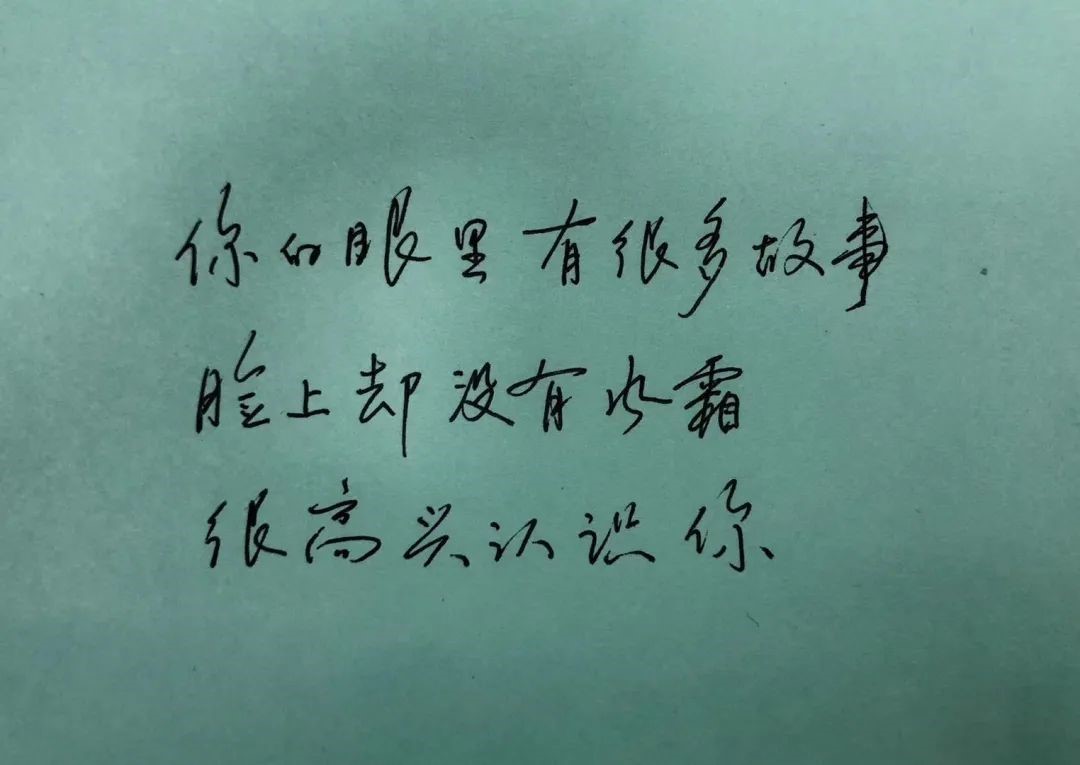 你的眼里有很多故事
脸上却没有冰霜
很高兴认识你